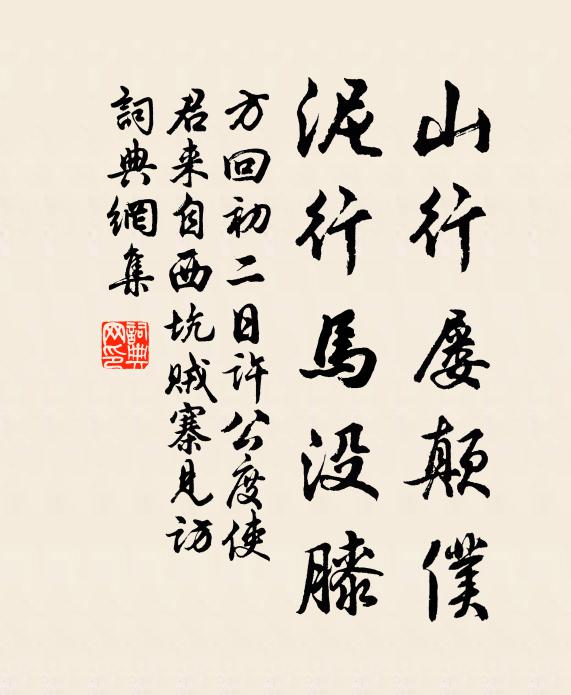 山行屡颠僕
泥行馬没膝
方回初二日许公度使
君来自西坑贼寨見访
詞典網集
詞典网印